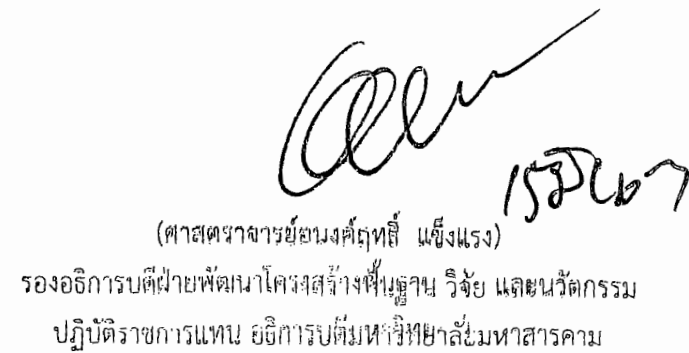 (ศาสตราจารย์อนงค์ฤทธิ์ แข็งแรง)
รองอธิการบดีฝ่ายพัฒนาโครงสร้างพื้นฐาน วิจัย และนวัตกรรม
ปฏิบัติราชการแทน อธิการบดีมหาวิทยาลัยมหาสารคาม